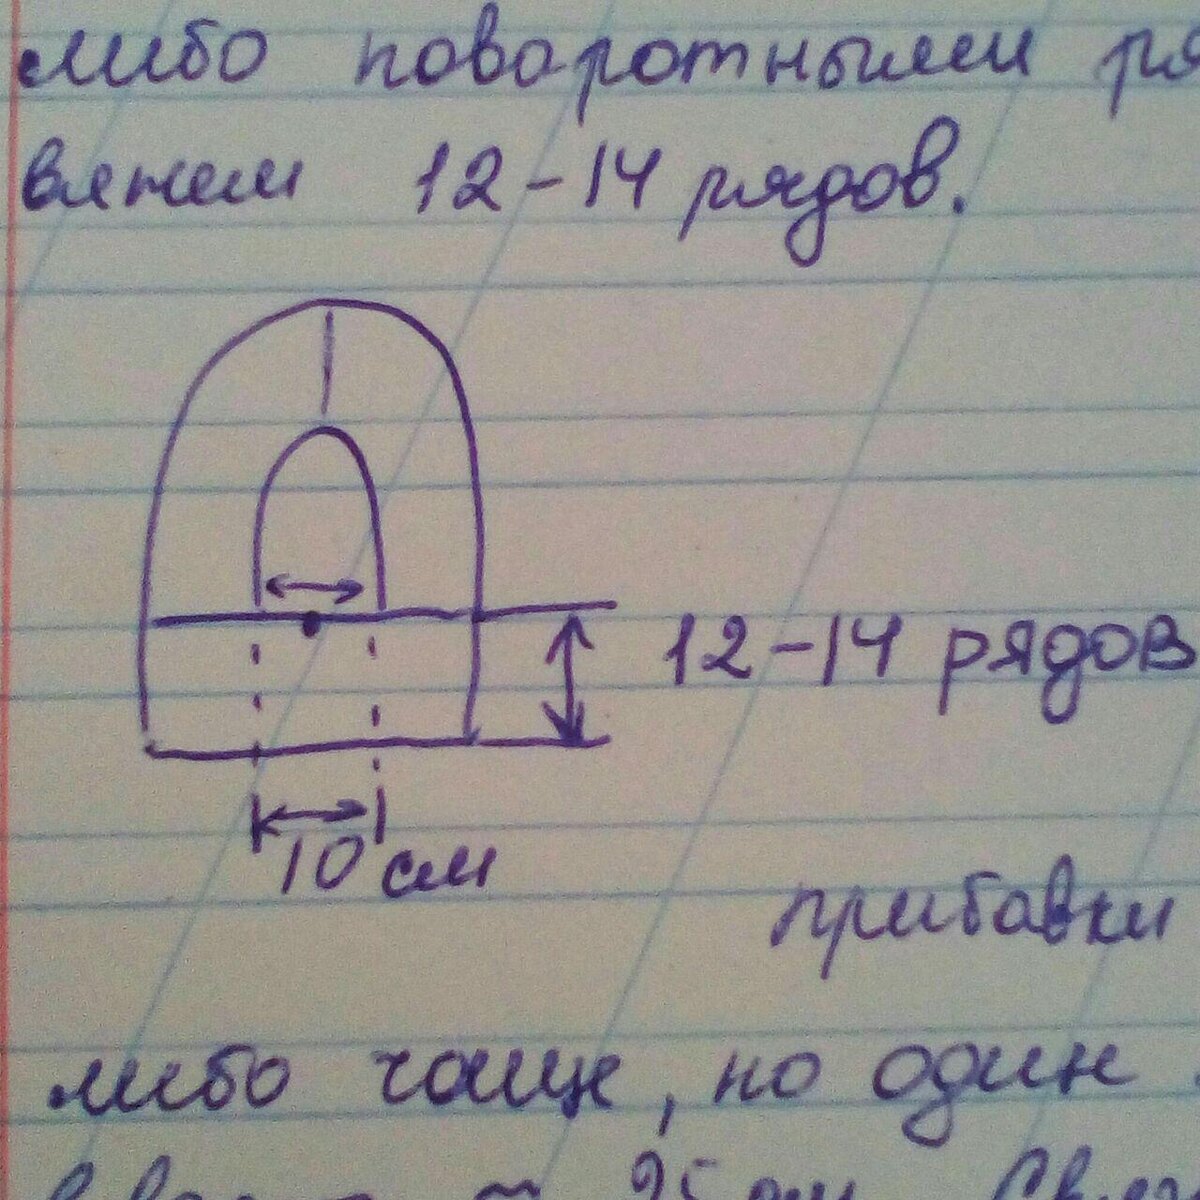 либо поворотными ря
вяжем 12-14 рядов.
12-14 рядов
10 см
прибавки
либо чаще, но один